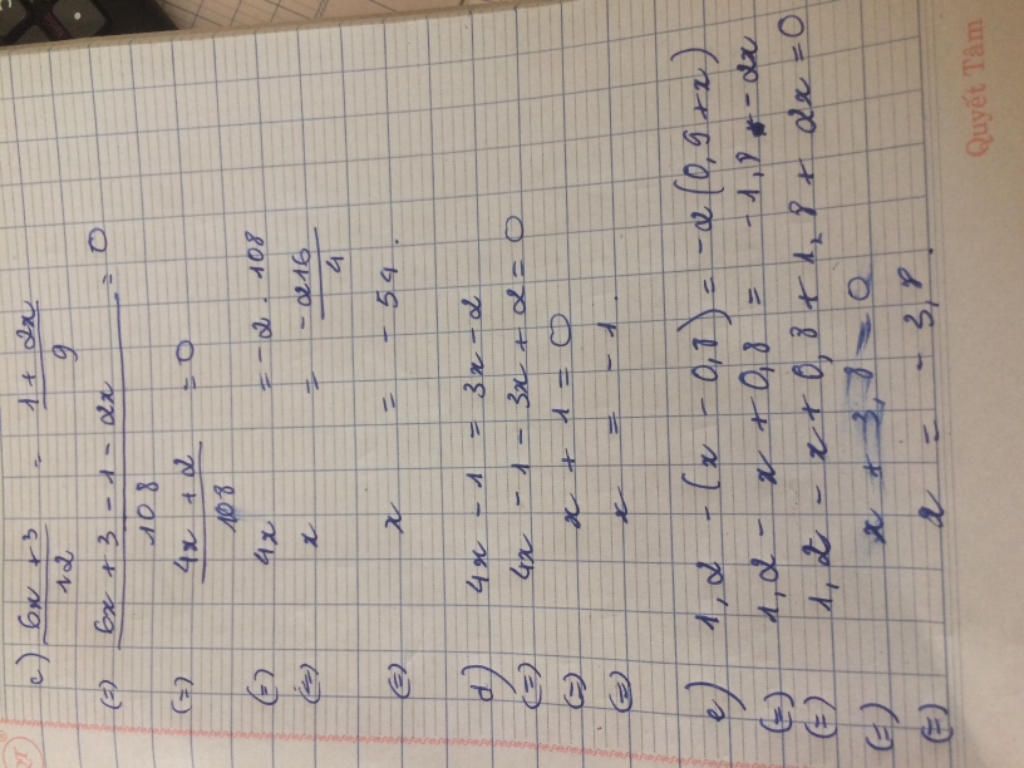 c) (6x + 3)/12 = (1 + 2x)/9
(=) (6x + 3 - 1 - 2x)/108 = 0
(=) (4x + 2)/108 = 0
(=) 4x = - 2 . 108
(=) x = - 216/4
(=) x = - 54.
d) 4x - 1 = 3x - 2
(=) 4x - 1 - 3x + 2 = 0
(=) x + 1 = 0
(=) x = - 1.
e) 1,2 - (x - 0,8) = - 2(0,9 + x)
(=) 1,2 - x + 0,8 = - 1,8 - 2x
(=) 1,2 - x + 0,8 + 1,8 + 2x = 0
(=) x + 3,8 = 0
(=) x = - 3,8.
Quyết Tâm